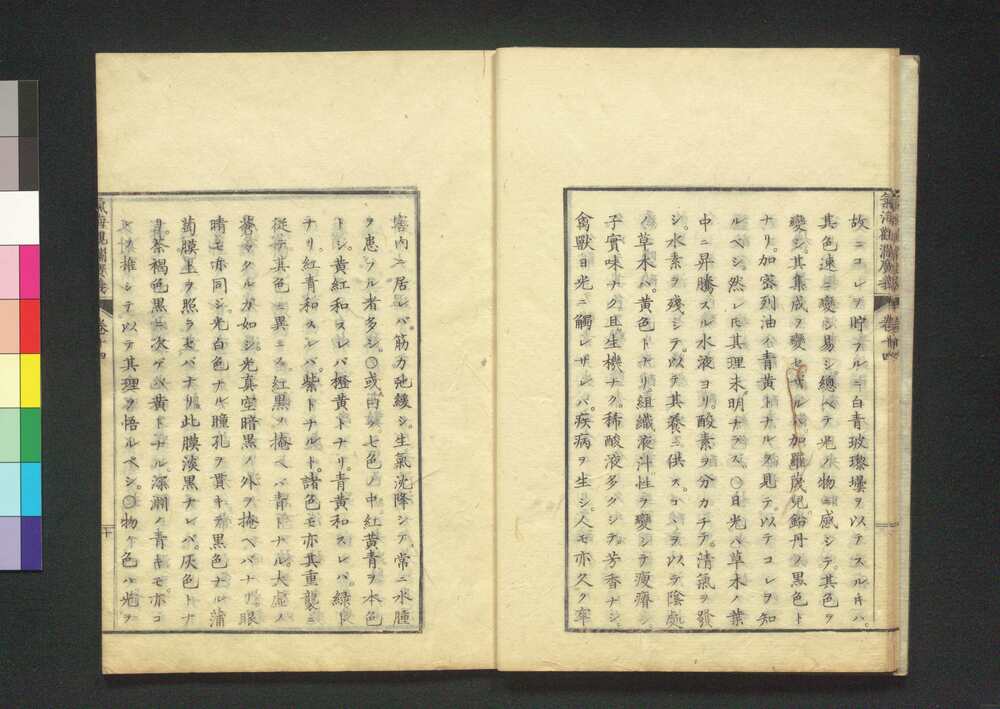 氣海觀瀾廣義 卷十四
故ニコレヲ貯フルニ白青玻瓈壜ヲ以テスル𪜈ハ。
其色速ニ變シ易シ總ベテ光ノ物ニ感シテ。其色ヲ
變シ其集成ヲ變セシムル
加羅蔑兒鉛丹ノ黒色ト
ナリ。加密列油ノ青黄トナルヲ見テ。以テコレヲ知
ルベシ。然レ𪜈其理未明ナラス。〇日光ハ草木ノ葉
中ニ昇騰スル水液ヨリ。酸素ヲ分カチテ。清氣ヲ發
シ。水素ヲ殘シテ。以テ其養ニ供ス。コヽヲ以テ陰處
ノ草木ハ。黄色トナリ。組織液汁性ヲ變シテ瘦瘠シ。
子實味ナク。且生機ナク。稀酸液多クシテ。芳香ナシ。
禽獸日光ニ觸レザレバ。疾病ヲ生シ。人モ亦久ク牢
窖内ニ居レバ。筋力弛緩シ。生氣沈降シテ。常ニ水腫
ヲ患フル者多シ。〇或曰ク七色ノ中紅黄青ヲ本色
トシ。黄紅和スレバ橙黄トナリ。青黄和スレバ。緑ト
ナリ。紅青和スレバ。紫トナルト。諸色モ亦其重襲ニ
從テ其色ヲ異ニス。紅黒ヲ掩ヘバ青トナル。大虚ノ
蒼々タルガ如シ。光真空暗黒ノ外ヲ掩ヘバナリ。眼
睛モ亦同シ。光白色ナル瞳孔ヲ貫キテ黒色ナル蒲
萄膜上ヲ照ラセバナリ。此膜淡黒ナレバ。灰色トナ
リ。茶褐色黒ニ次ゲバ黄トナル。深淵ノ青キモ。亦コ
レヲ推シテ以テ其理ヲ悟ルベシ。〇物ノ色ハ光ヲ
卷十四
十